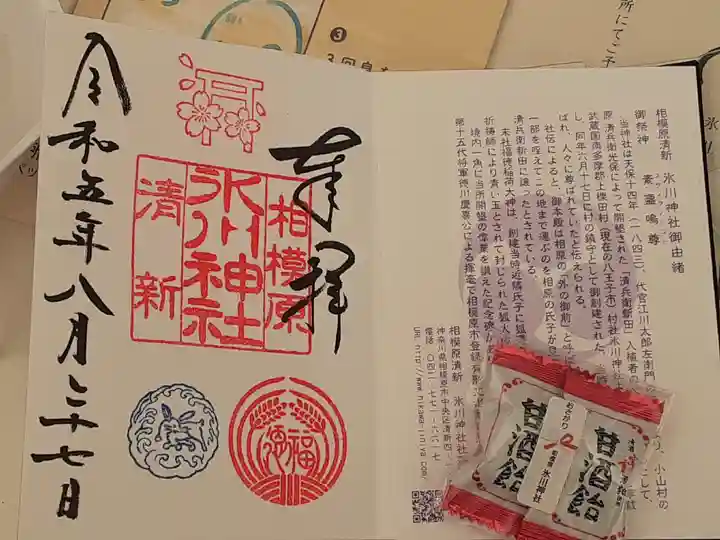 奉拝
相模原
氷川神社
清新
福徳
令和五年八月二十七日
所にてご予
❸
相模原清新 氷川神社御由緒
御祭神 素盞嗚尊
当神社は天保十四年(一八四三)、代官江川太郎左衛門の
原清兵衛光保によって開墾された「清兵衛新田」入植者の
武蔵国南多摩郡上椚田村(現在の八王子市)村社氷川神社
し、同年六月十七日に村の鎮守として御創建された。
ばれ、人々に尊ばれていたと伝えられる。
社伝によると、御本殿は相原の「外の御前」と呼
一部を咥えてこの地まで運ぶのを相原の氏子が見
清兵衛新田に譲ったとされている。
末社福徳稲荷大神は、創建当時近隣氏子に狐
祈祷師により青い玉とされて封じられた狐火
境内一角に当所開墾の偉業を讃えた記念碑が
第十五代将軍徳川慶喜公による揮毫で相模原市登録有形
小山村の
相模原清新 氷川神社社
神奈川県相模原市中央区清新四
おさがり
相模原 氷川神社
甘酒飴
甘酒飴